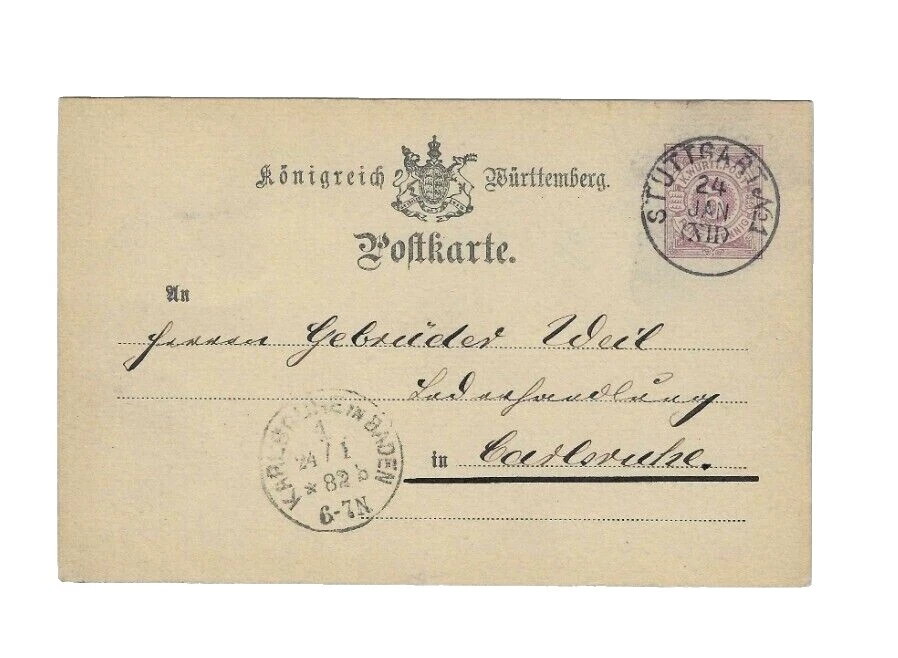 Königreich Württemberg.
Postkarte.
STUTTGART No 1
24
JAN
(XII)
An
Herren Gebrüder Weil
Lederhandlung
in Carlsruhe.
KARLSRUHE IN BADEN
1
24 / 1
* 82 b
6-7N